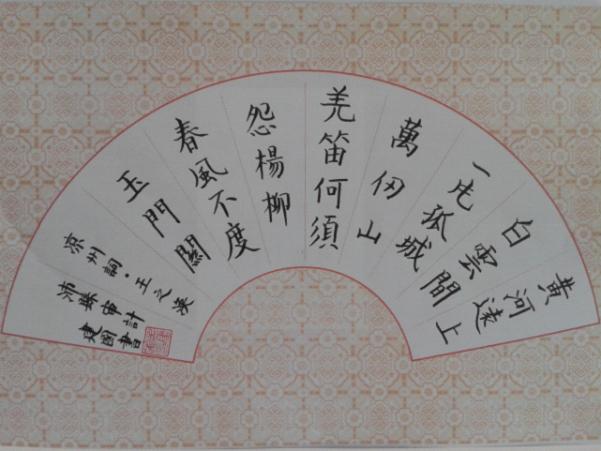 黄河遠上
白雲間
一片孤城
萬仞山
羌笛何須
怨楊柳
春風不度
玉門關
凉州詞·王之渙
沛縣審計
建國書